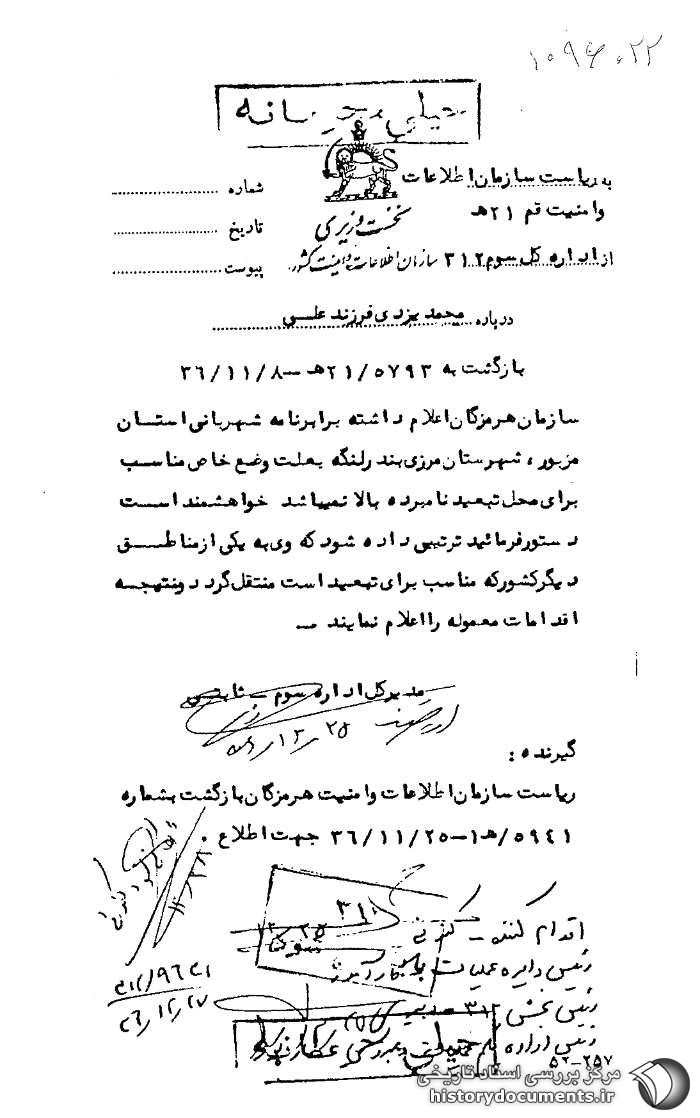 ۱۰۹۶۰۲۲
خیلی محرمانه
به ریاست سازمان اطلاعات
و امنیت قم ۲۱ هـ
از اداره کل سوم ۳۱۲
نخست وزیری
سازمان اطلاعات و امنیت کشور
شماره
تاریخ
پیوست
درباره محمد یزدی فرزند علی
بازگشت به ۲۱/۵۷۹۳ هـ – ۳۶/۱۱/۸
سازمان هرمزگان اعلام داشته برابرنامه شهربانی استان
مزبور، شهرستان مرزی بندرلنگه بعلت وضع خاص مناسب
برای محل تبعید نامبرده بالا نمیباشد خواهشمند است
دستور فرمائید ترتیبی داده شود که وی به یکی از مناطق
دیگر کشور که مناسب برای تبعید است منتقل گردد و نتیجه
اقدامات معموله را اعلام نمایند –
مدیر کل اداره سوم – ثابتی
گیرنده :
ریاست سازمان اطلاعات و امنیت هرمزگان بازگشت بشماره
۵۹۴۱/هـ۱–۳۶/۱۱/۲۵ جهت اطلاع .
اقدام کننده –
رئیس دایره عملیات
رئیس بخش ۳۱۲
رئیس اداره یکم عملیات و بررسی عطارپور
خیلی محرمانه
۳۱۲/۹۶۲۱
۳۶/۱۲/۲۷
۵۲–۲۵۷
مرکز بررسی اسناد تاریخی
historydocuments.ir